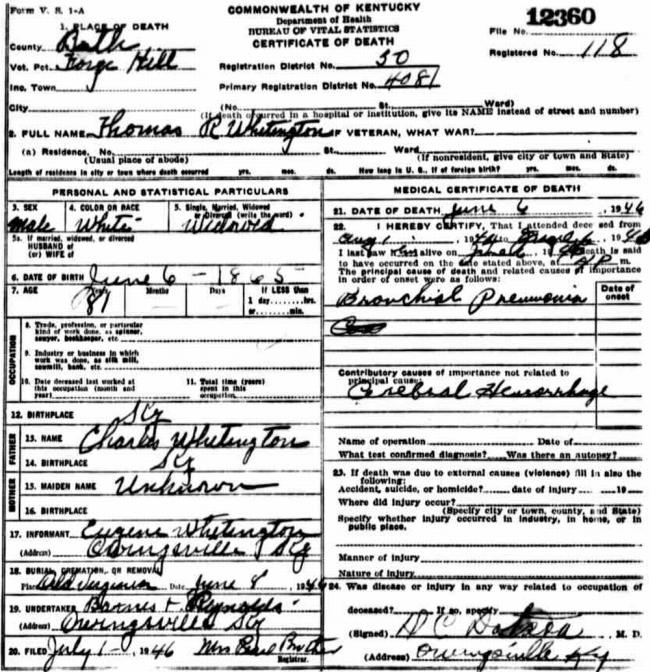 Form V. S. 1-A
COMMONWEALTH OF KENTUCKY
Department of Health
BUREAU OF VITAL STATISTICS
CERTIFICATE OF DEATH
File No. 12360
Registered No. 118
1. PLACE OF DEATH
County Bath
Vot. Pct. Forge Hill
Inc. Town
City
Registration District No. 50
Primary Registration District No. 4081
(No. St. Ward)
(If death occurred in a hospital or institution, give its NAME instead of street and number)
2. FULL NAME Thomas R Whitington IF VETERAN, WHAT WAR?
(a) Residence. No. St. Ward
(Usual place of abode) (If nonresident, give city or town and State)
Length of residence in city or town where death occurred yrs. mos. ds. How long in U. S., if of foreign birth? yrs. mos. ds.
PERSONAL AND STATISTICAL PARTICULARS
3. SEX male
4. COLOR OR RACE White
5. Single, Married, Widowed or Divorced (write the word) Widowed
5a. If married, widowed, or divorced
HUSBAND of
(or) WIFE of
6. DATE OF BIRTH June 6 - 1865
7. AGE 81 Months Days If LESS than
1 day hrs.
or min.
OCCUPATION
8. Trade, profession, or particular
kind of work done, as spinner,
sawyer, bookkeeper, etc.
9. Industry or business in which
work was done, as silk mill,
sawmill, bank, etc.
10. Date deceased last worked at
this occupation (month and
year)
11. Total time (years)
spent in this
occupation
12. BIRTHPLACE Ky
FATHER
13. NAME Charles Whitington
14. BIRTHPLACE Ky
MOTHER
15. MAIDEN NAME Unknown
16. BIRTHPLACE
17. INFORMANT Eugene Whitington
(Address) Owingsville Ky
18. BURIAL, CREMATION, OR REMOVAL
Place Date June 8, 1946
19. UNDERTAKER Barnes & Reynolds
(Address) Owingsville Ky
20. FILED July 1 - 1946 Mrs
Registrar.
MEDICAL CERTIFICATE OF DEATH
21. DATE OF DEATH June 6, 1946
22. I HEREBY CERTIFY, That I attended deceased from
I last saw h alive on death is said
to have occurred on the date stated above, at P m.
The principal cause of death and related causes of importance
in order of onset were as follows:
Date of
onset
Bronchial Pneumonia
Contributory causes of importance not related to
principal cause:
Cerebral Hemorrhage
Name of operation Date of
What test confirmed diagnosis? Was there an autopsy?
23. If death was due to external causes (violence) fill in also the
following:
Accident, suicide, or homicide? date of injury 19
Where did injury occur?
(Specify city or town, county, and State)
Specify whether injury occurred in industry, in home, or in
public place.
Manner of injury
Nature of injury
24. Was disease or injury in any way related to occupation of
deceased? If so, specify
(Signed) M. D.
(Address) Owingsville Ky